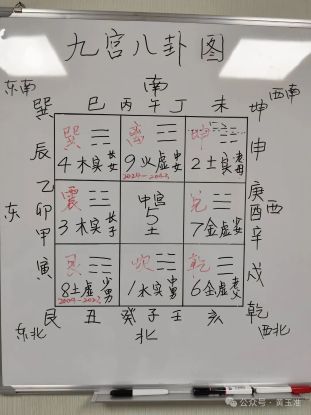 九宫八卦图
东南 南 西南
巽 巳 丙 午 丁 未 坤
辰 申
乙 庚
东 卯 酉 西
甲 辛
寅 戌
巽 离 坤
4木实 长女 9火虚 中女 2土实 老母
2024-2043
震 中宫 兑
3木实 长子 5 7金虚 少女
土
艮 坎 乾
8土虚 少男 1水实 中男 6金虚 老父
2004-2023
艮 丑 癸 子 壬 亥 乾
东北 北 西北
公众号·黄玉准